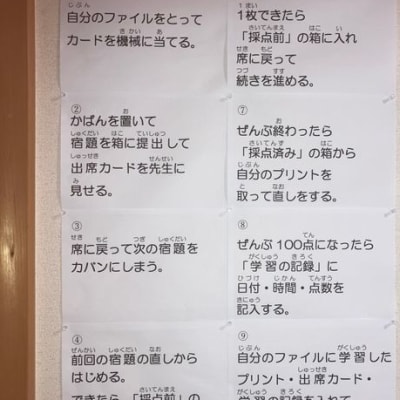 自分のファイルをとって
カードを機械に当てる。
②
かばんを置いて
宿題を箱に提出して
出席カードを先生に
見せる。
③
席に戻って次の宿題を
カバンにしまう。
④
前回の宿題の直しから
はじめる。
できたら「採点前」の
1枚できたら
「採点前」の箱に入れ
席に戻って
続きを進める。
⑦
ぜんぶ終わったら
「採点済み」の箱から
自分のプリントを
取って直しをする。
⑧
ぜんぶ100点になったら
「学習の記録」に
日付・時間・点数を
記入する。
⑨
自分のファイルに学習した
プリント・出席カード・
学習の記録を入れて